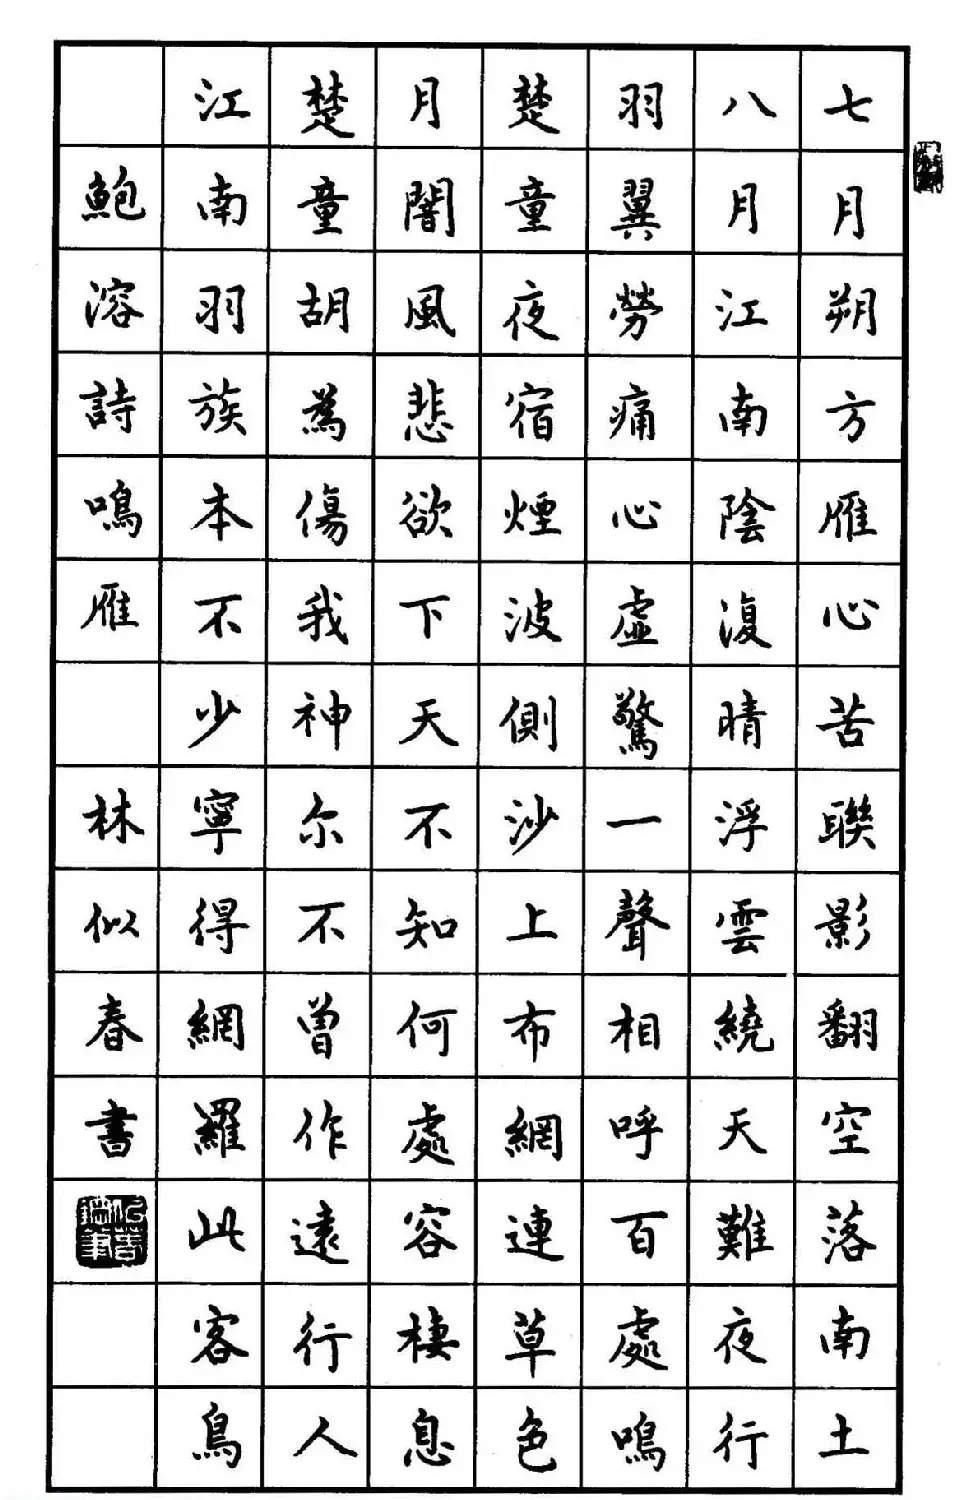 七月朔方雁心苦聯影翻空落南土
八月江南陰復晴浮雲繞天難夜行
羽翼勞痛心虛驚一聲相呼百處鳴
楚童夜宿煙波側沙上布網連草色
月闇風悲欲下天不知何處容棲息
楚童胡為傷我神尔不曾作遠行人
江南羽族本不少寧得網羅此客鳥
鮑溶詩鳴雁 林似春書